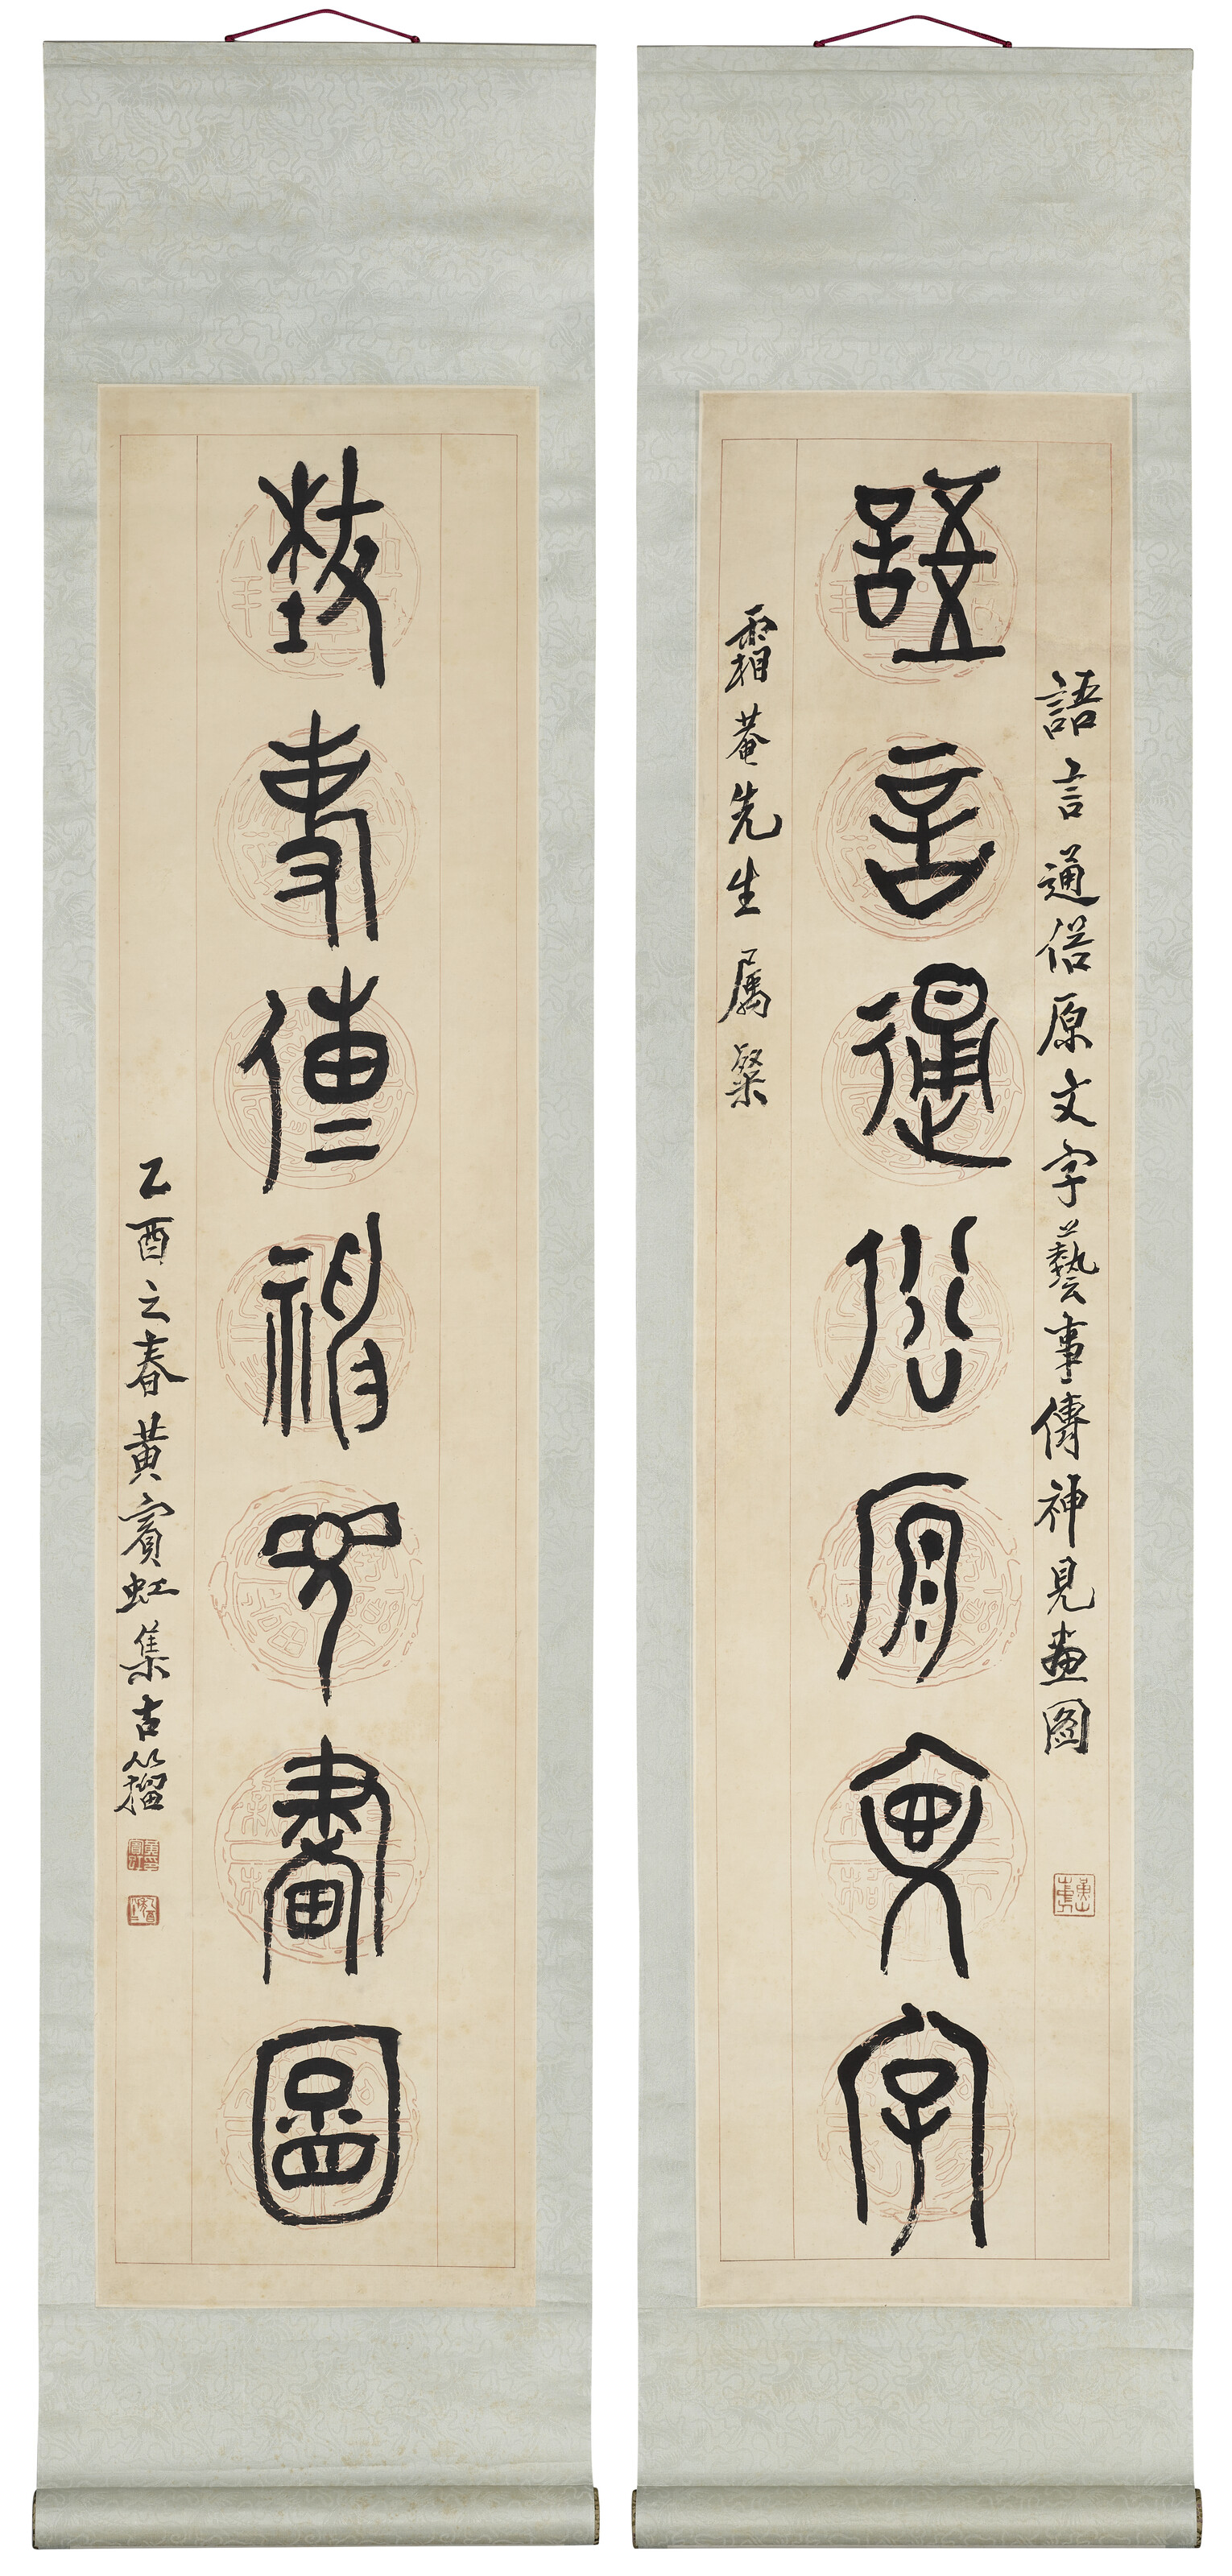 語言通俗原文字
語言通俗原文字藝事傳神見畫圖
霜菴先生屬粲
藝事傳神見畫圖
乙酉之春黃賓虹集古籀